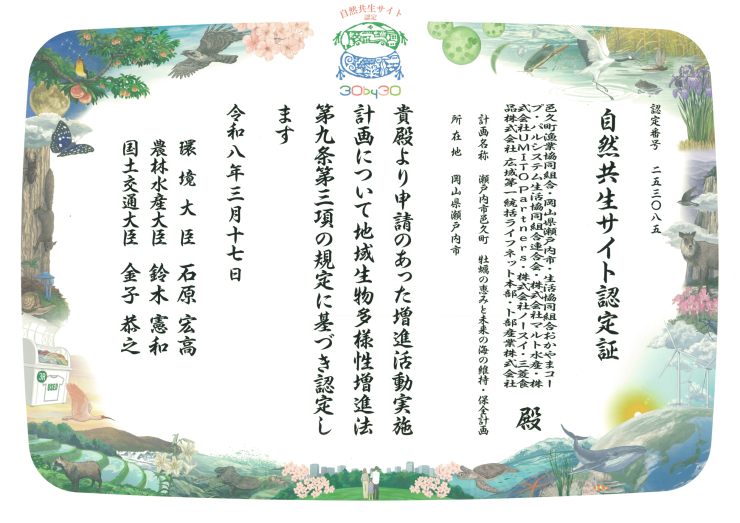 自然共生サイト
認定
30by30
認定番号 二五三〇八五
自然共生サイト認定証
邑久町漁業協同組合・岡山県瀬戸内市・生活協同組合おかやまコー
プ・パルシステム生活協同組合連合会・株式会社マルト水産・株
式会社UMITO Partners・株式会社ノースイ・三菱食
品株式会社 広域第一統括ライフネット本部・卜部産業株式会社
殿
計画名称 瀬戸内市邑久町 牡蠣の恵みと未来の海の維持・保全計画
所在地 岡山県瀬戸内市
貴殿より申請のあった増進活動実施
計画について地域生物多様性増進法
第九条第三項の規定に基づき認定し
ます
令和八年三月十七日
環境大臣 石原宏高
農林水産大臣 鈴木憲和
国土交通大臣 金子恭之